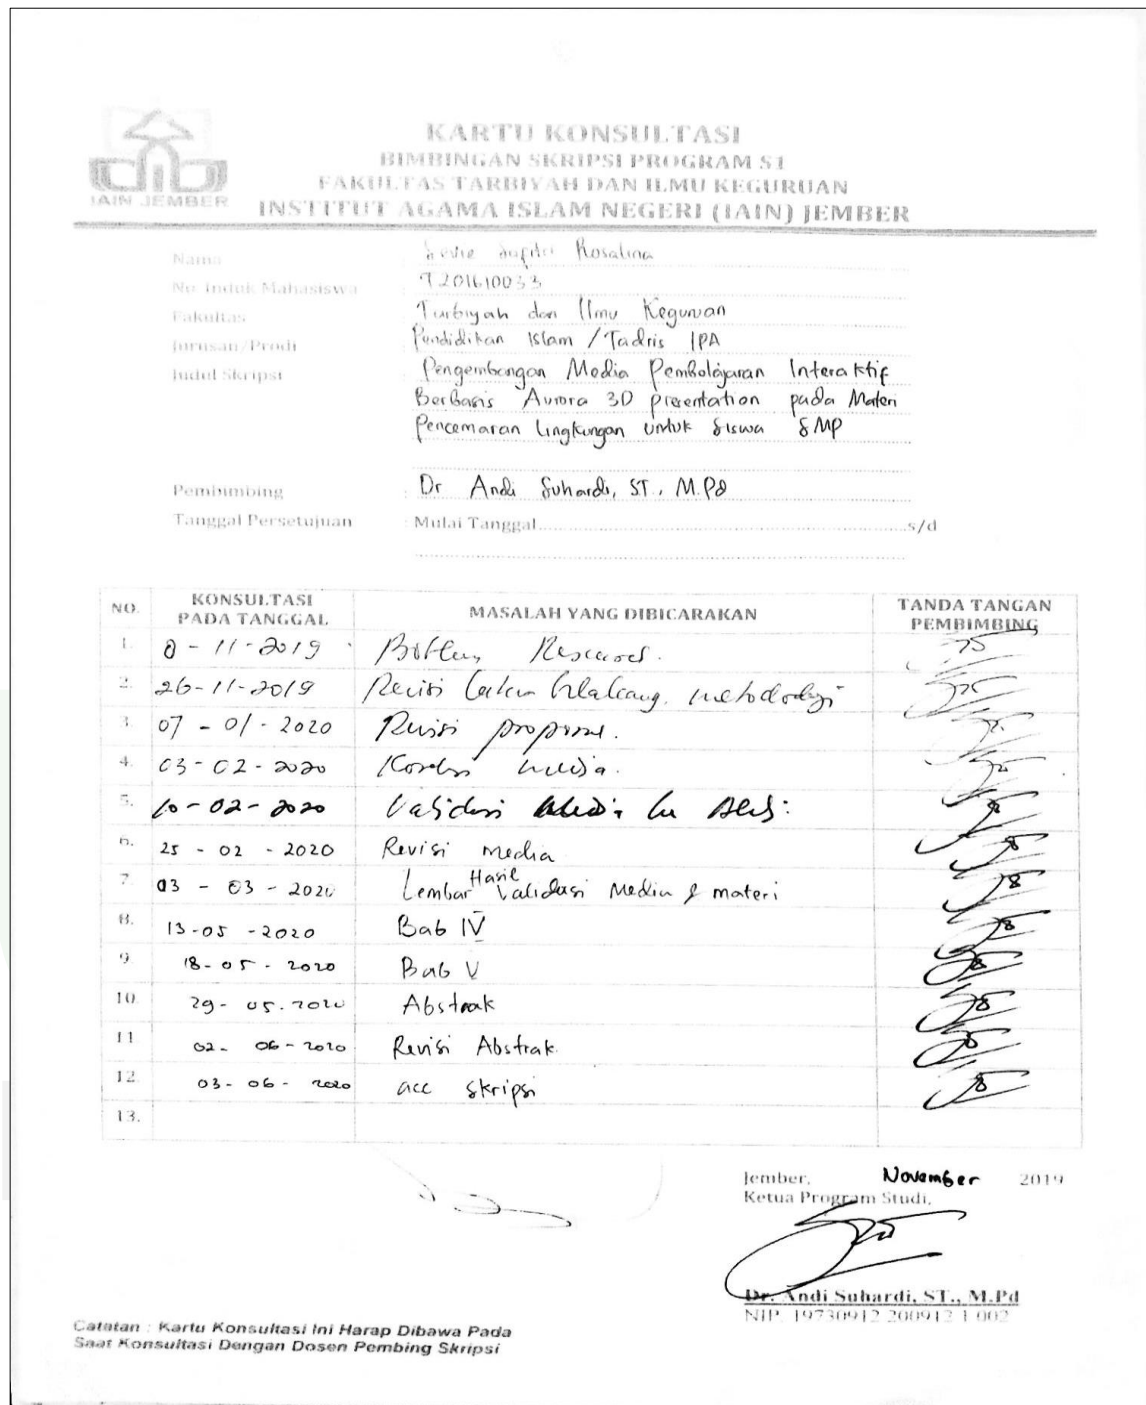 KARTU KONSULTASI
BIMBINGAN SKRIPSI PROGRAM S1
FAKULTAS TARBIYAH DAN ILMU KEGURUAN
INSTITUT AGAMA ISLAM NEGERI (IAIN) JEMBER
IAIN JEMBER
Nama Rosalina
No. Induk Mahasiswa T201610033
Fakultas Tarbiyah dan Ilmu Keguruan
Jurusan/Prodi Pendidikan Islam / Tadris IPA
Judul Skripsi Pengembangan Media Pembelajaran Interaktif
Berbasis Aurora 3D presentation pada Materi
Pencemaran Lingkungan untuk Siswa SMP
Pembimbing : Dr Andi Suhardi, ST., M.Pd
Tanggal Persetujuan : Mulai Tanggal..........s/d
NO. KONSULTASI PADA TANGGAL MASALAH YANG DIBICARAKAN TANDA TANGAN PEMBIMBING
1. 8 - 11 - 2019
2. 26-11-2019 Revisi latar belakang, metodologi
3. 07 - 01 - 2020 Revisi proposal.
4. 03-02-2020 Koreksi media.
5. 10-02-2020 Validasi Media ke Ahli
6. 25 - 02 - 2020 Revisi media
7. 03 - 03 - 2020 Lembar Hasil Validasi Media & materi
8. 13-05-2020 Bab IV
9 18-05-2020 Bab V
10. 29-05-2020 Abstrak
11 02-06-2020 Revisi Abstrak
12. 03-06-2020 acc skripsi
13.
Jember, November 2019
Ketua Program Studi,
Dr. Andi Suhardi, ST., M.Pd
NIP. 19730912 200912 1 002
Catatan : Kartu Konsultasi Ini Harap Dibawa Pada
Saat Konsultasi Dengan Dosen Pembing Skripsi